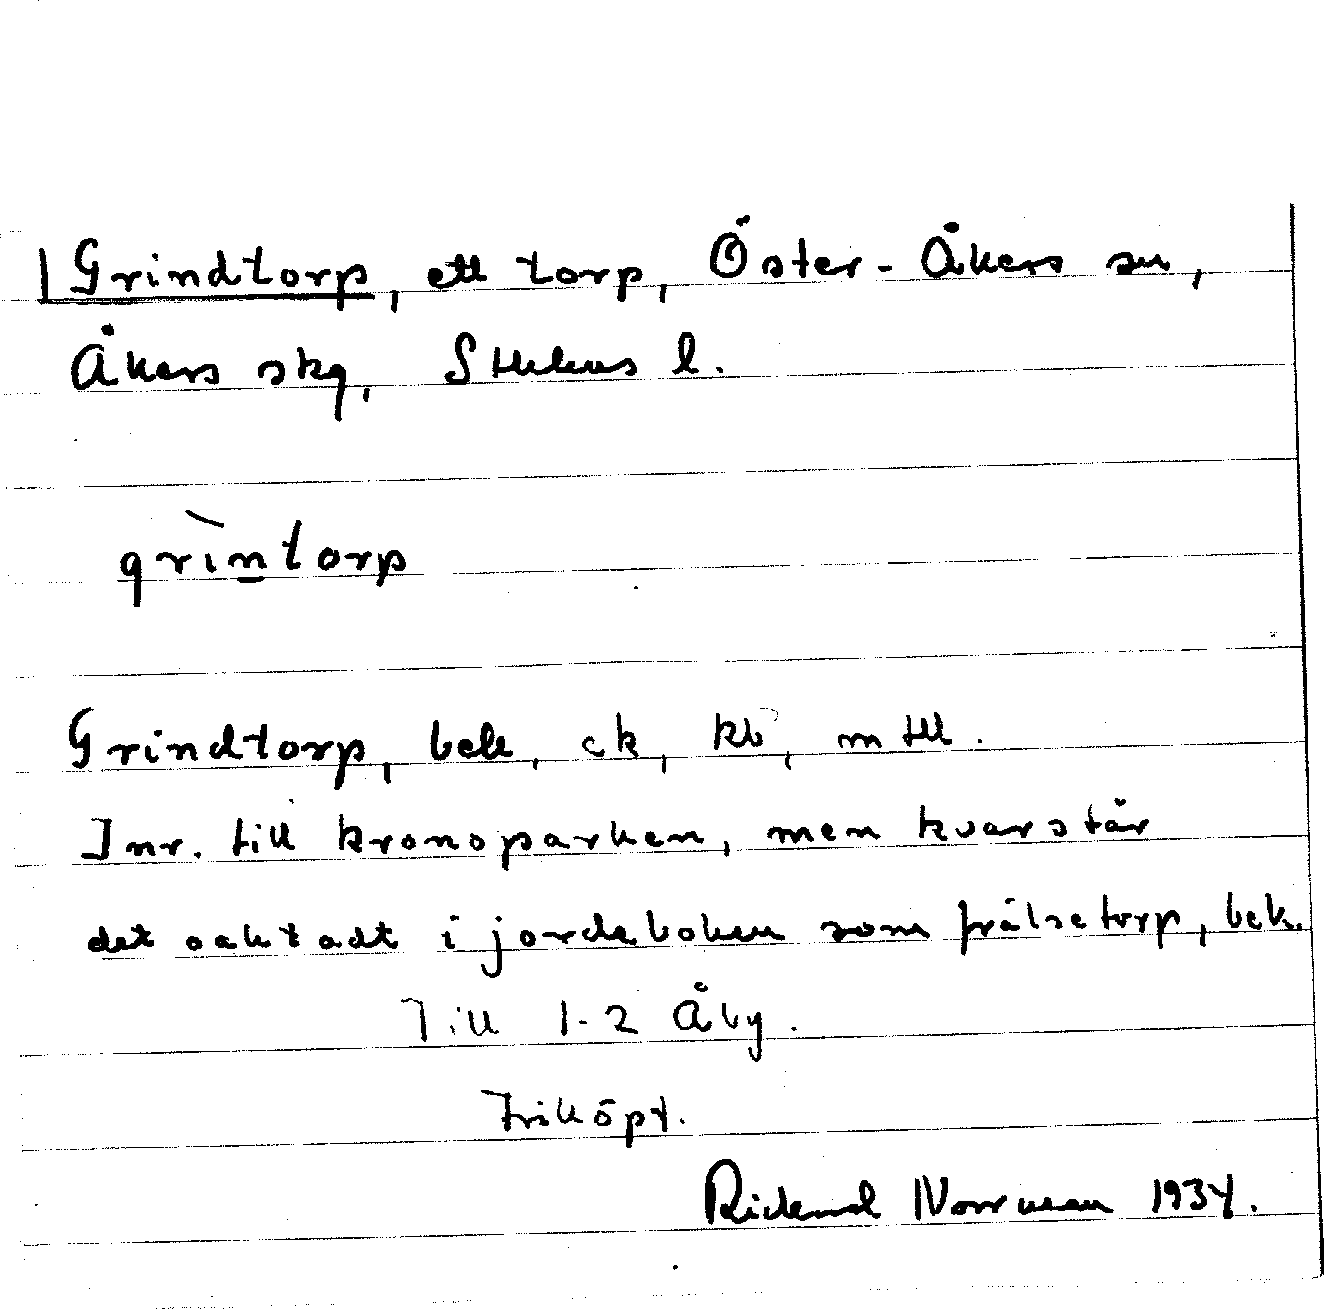 Grindtorp, ett torp, Öster-Åkers sn,
Åkers skg, Sthlms l.
grìntorp
Grindtorp, bek, ek, kb, mtl.
Inr. till kronoparken, men kvarstår
det oaktadt i jordeboken som frälsetorp, bek.
Till 1-2 Åby.
Friköpt.
Rickard Norrman 1934.